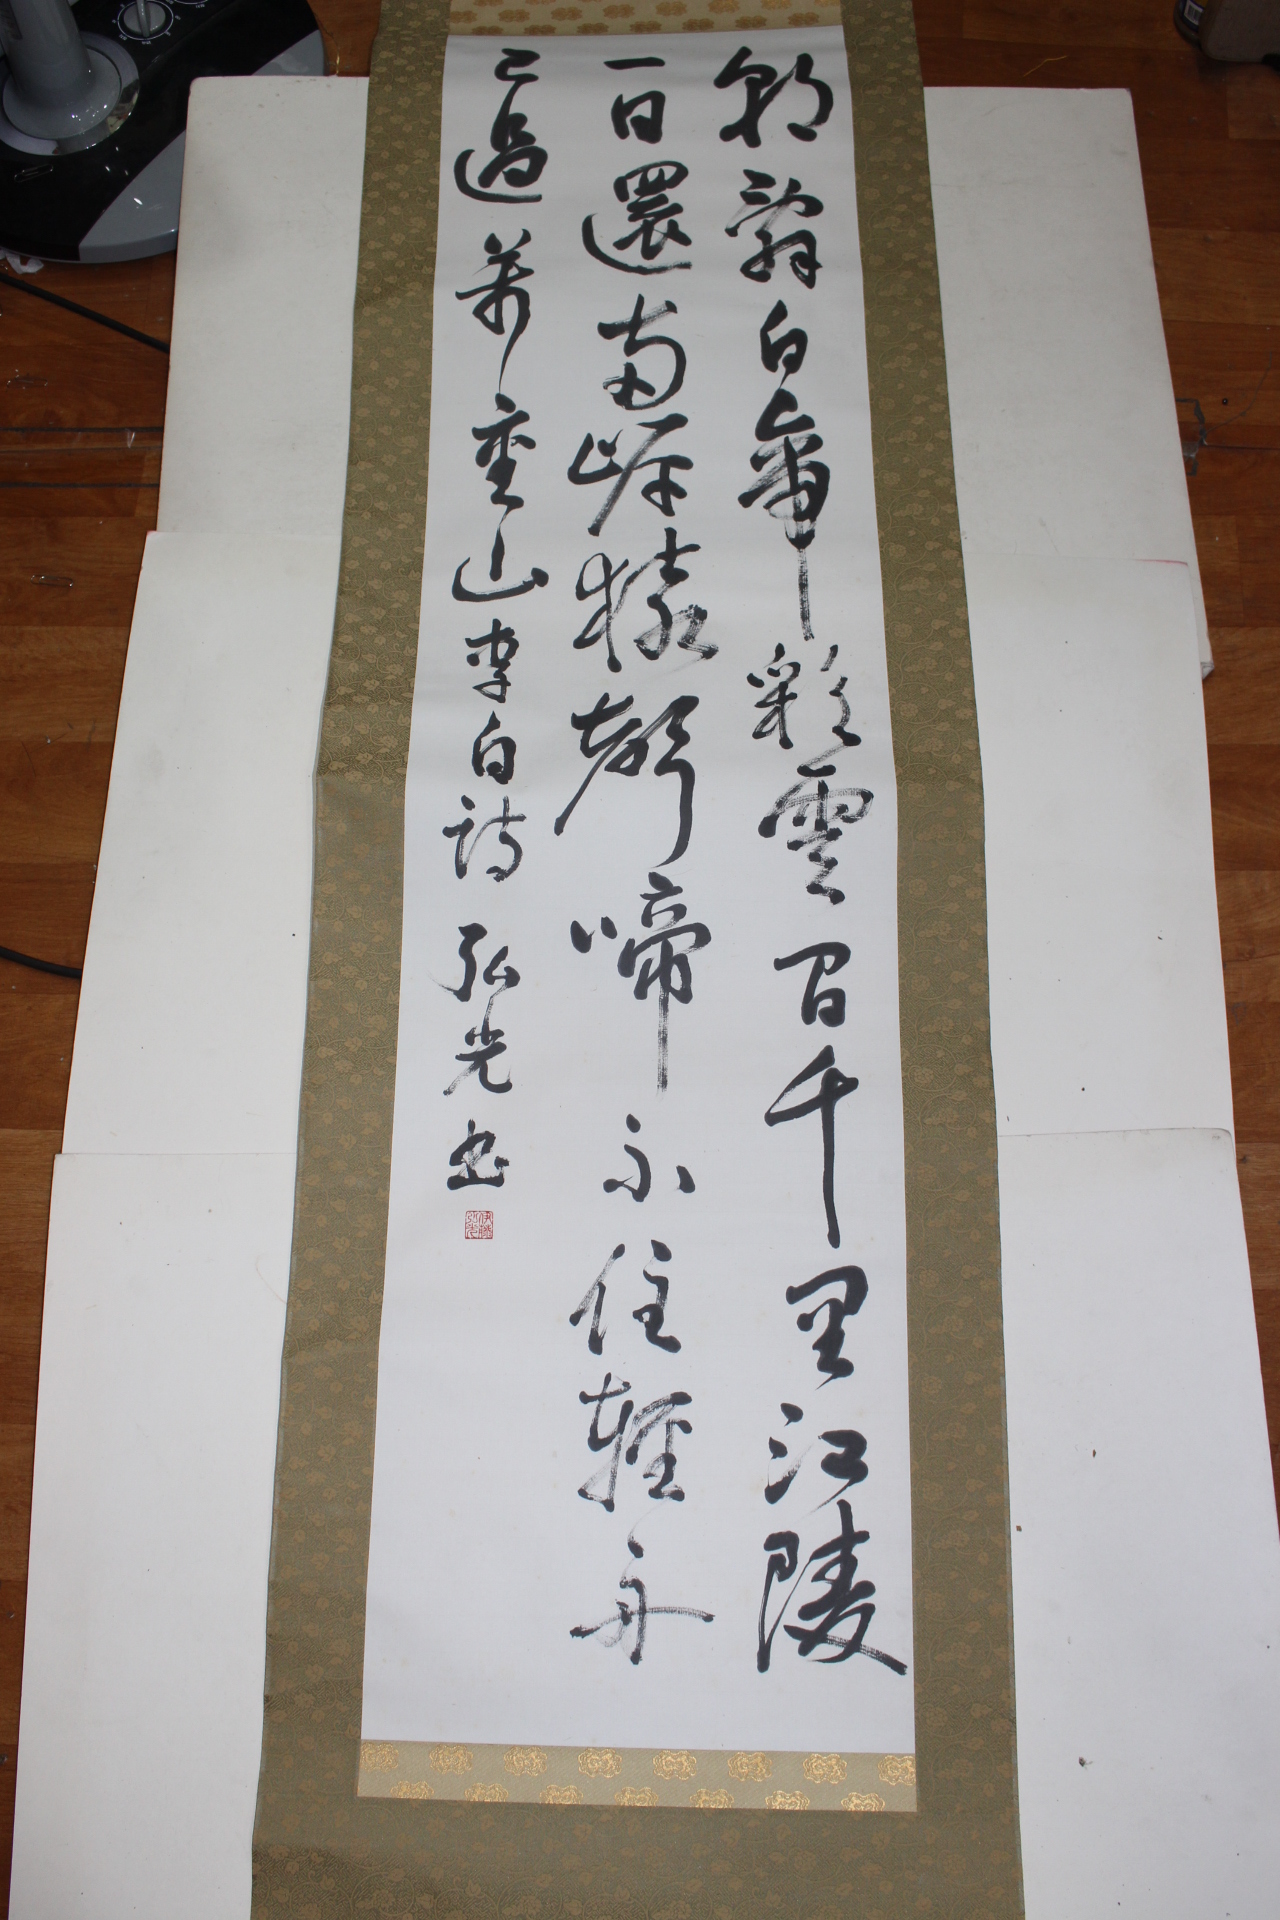 朝辭白帝彩雲間千里江陵
一日還兩岸猿聲啼不住輕舟
已過萬重山李白詩弘光書
伊藤弘光